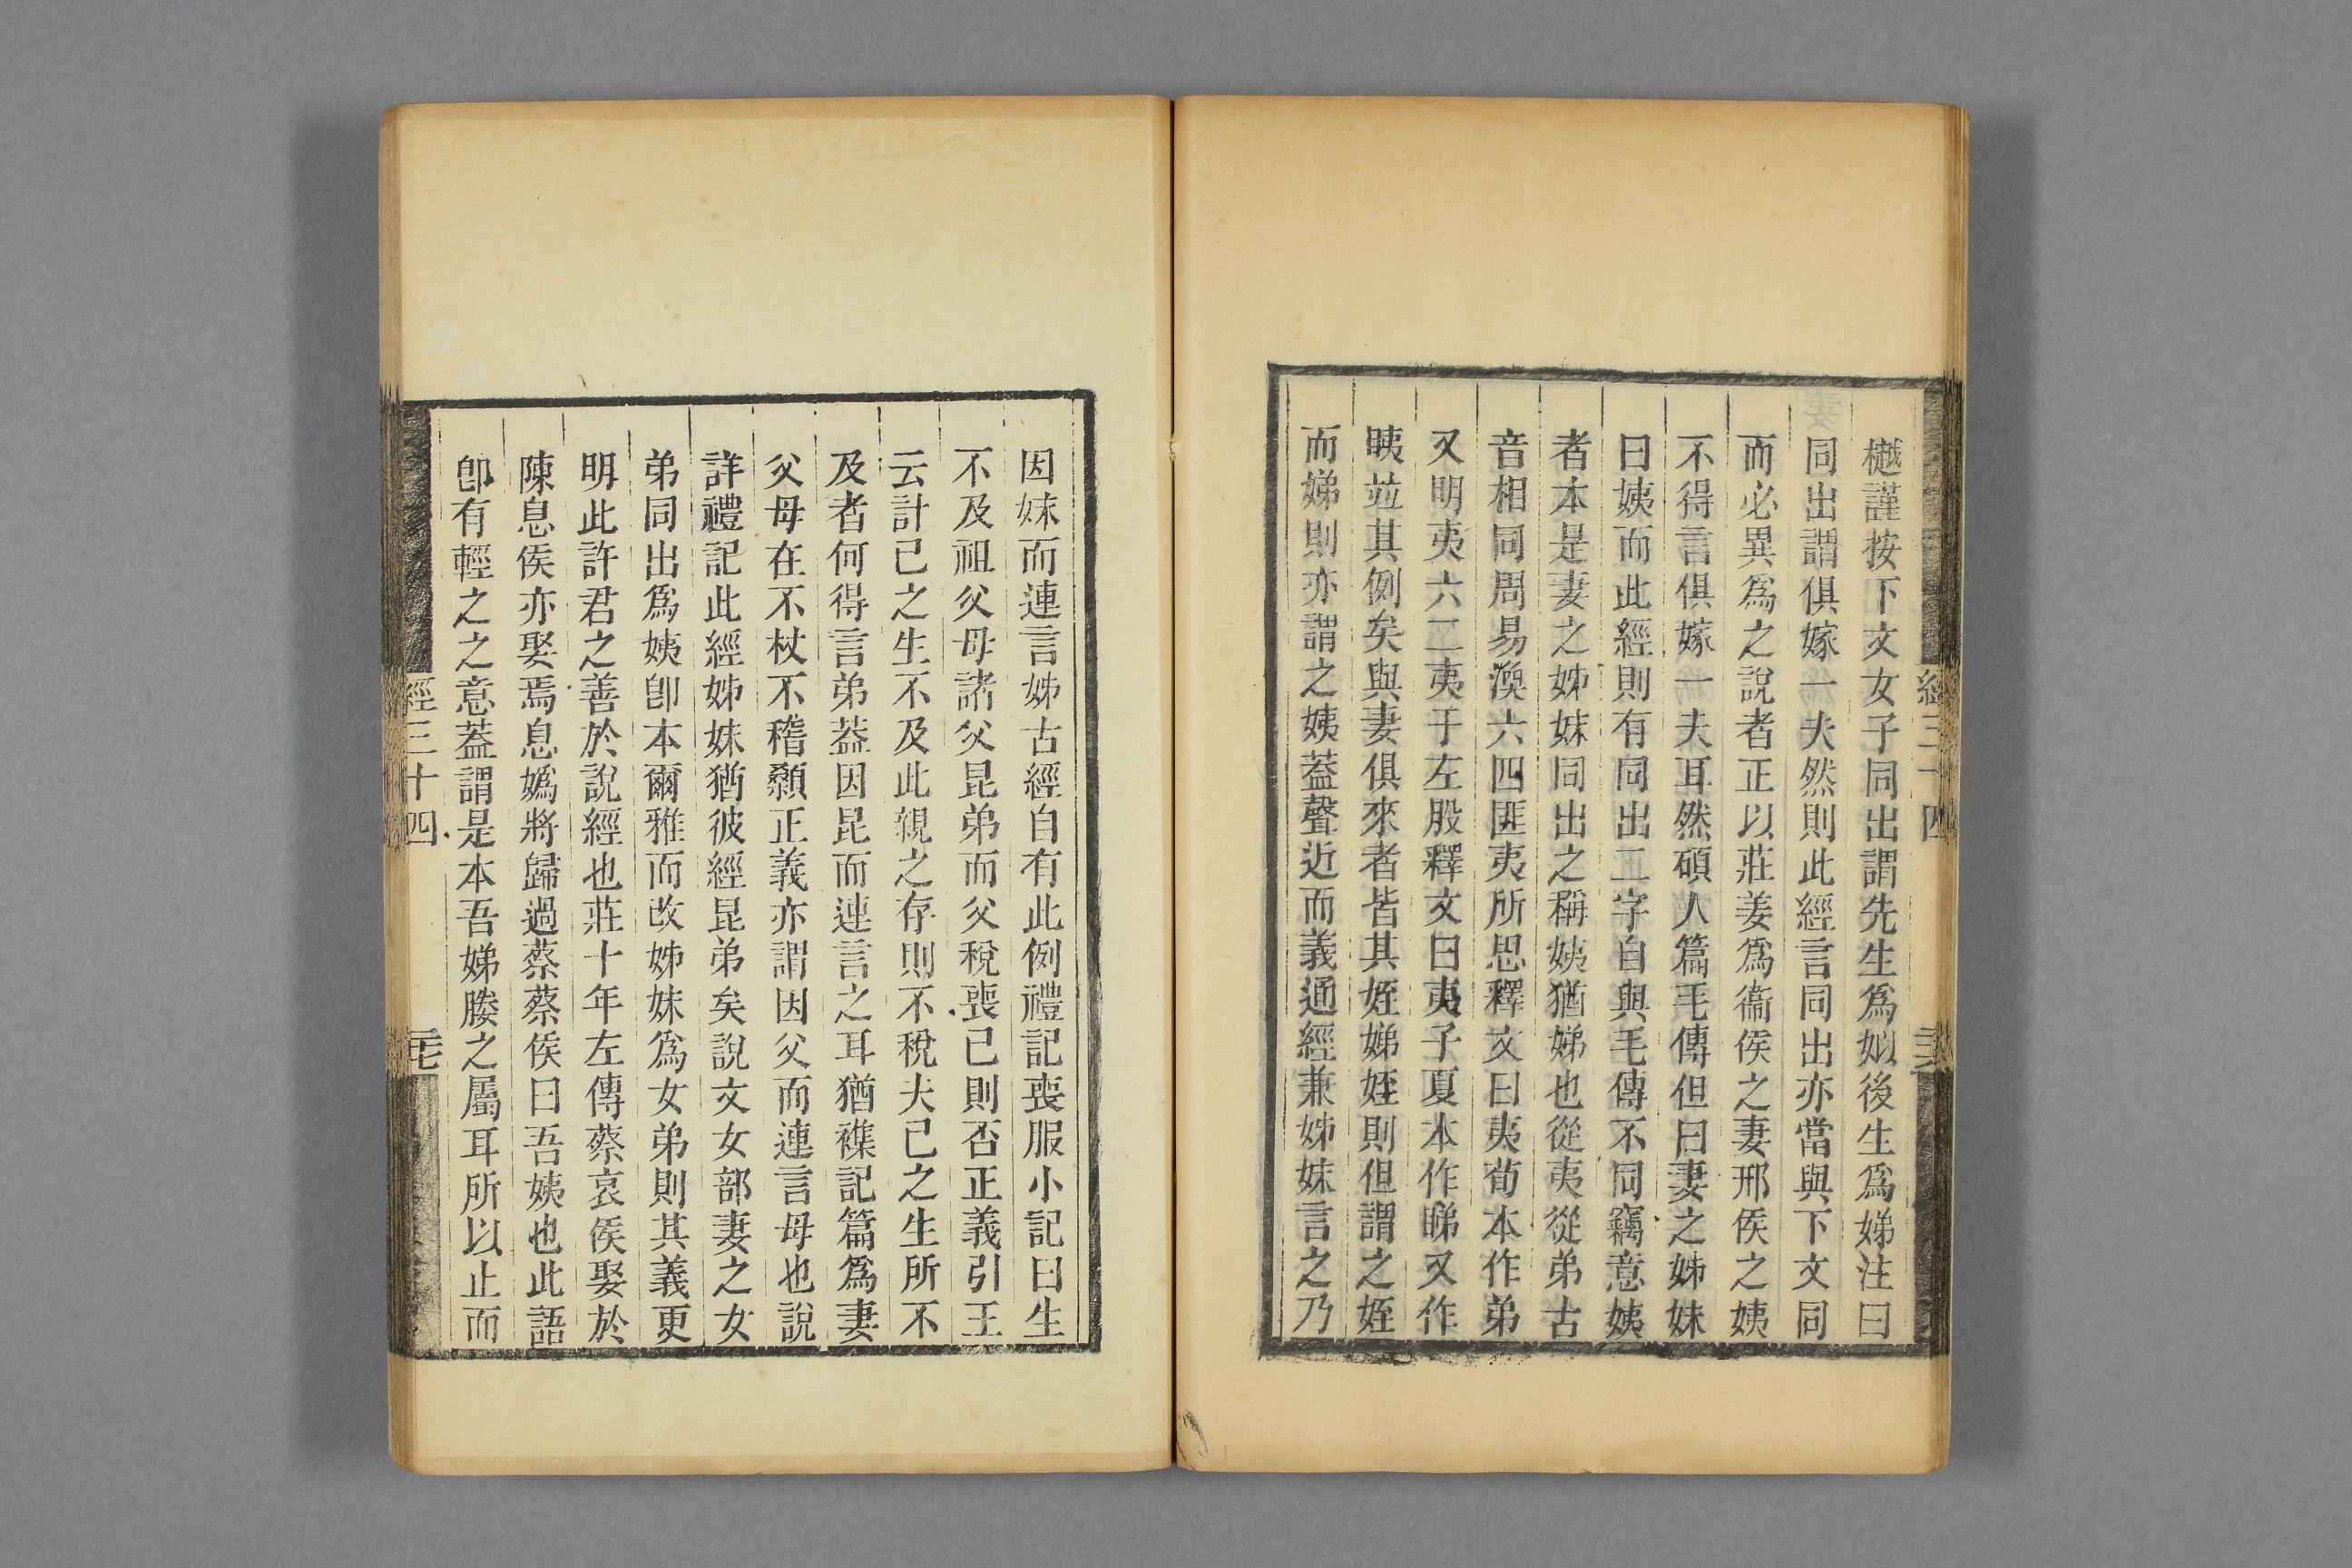 樾謹按下文女子同出謂先生爲姒後生爲娣注曰
同出謂俱嫁一夫然則此經言同出亦當與下文同
而必異爲之說者正以莊姜爲衞侯之妻邢侯之姨
不得言俱嫁一夫耳然碩人篇毛傳但曰妻之姊妹
曰姨而此經則有同出二字自與毛傳不同竊意姨
者本是妻之姊妹同出之稱姨猶娣也從夷從弟古
音相同周易渙六四匪夷所思釋文曰夷荀本作弟
又明夷六二夷于左股釋文曰夷子夏本作睇又作
眱竝其例矣與妻俱來者皆其姪娣姪則但謂之姪
而娣則亦謂之姨葢聲近而義通經兼姊妹言之乃
因妹而連言姊古經自有此例禮記喪服小記曰生
不及祖父母諸父昆弟而父稅喪己則否正義引王
云計己之生不及此親之存則不稅夫己之生所不
及者何得言弟葢因昆而連言之耳猶襍記篇爲妻
父母在不杖不稽顙正義亦謂因父而連言母也說
詳禮記此經姊妹猶彼經昆弟矣說文女部妻之女
弟同出爲姨卽本爾雅而改姊妹爲女弟則其義更
明此許君之善於說經也莊十年左傳蔡哀侯娶於
陳息侯亦娶焉息嬀將歸過蔡蔡侯曰吾姨也此語
卽有輕之之意葢謂是本吾娣媵之屬耳所以止而
經三十四